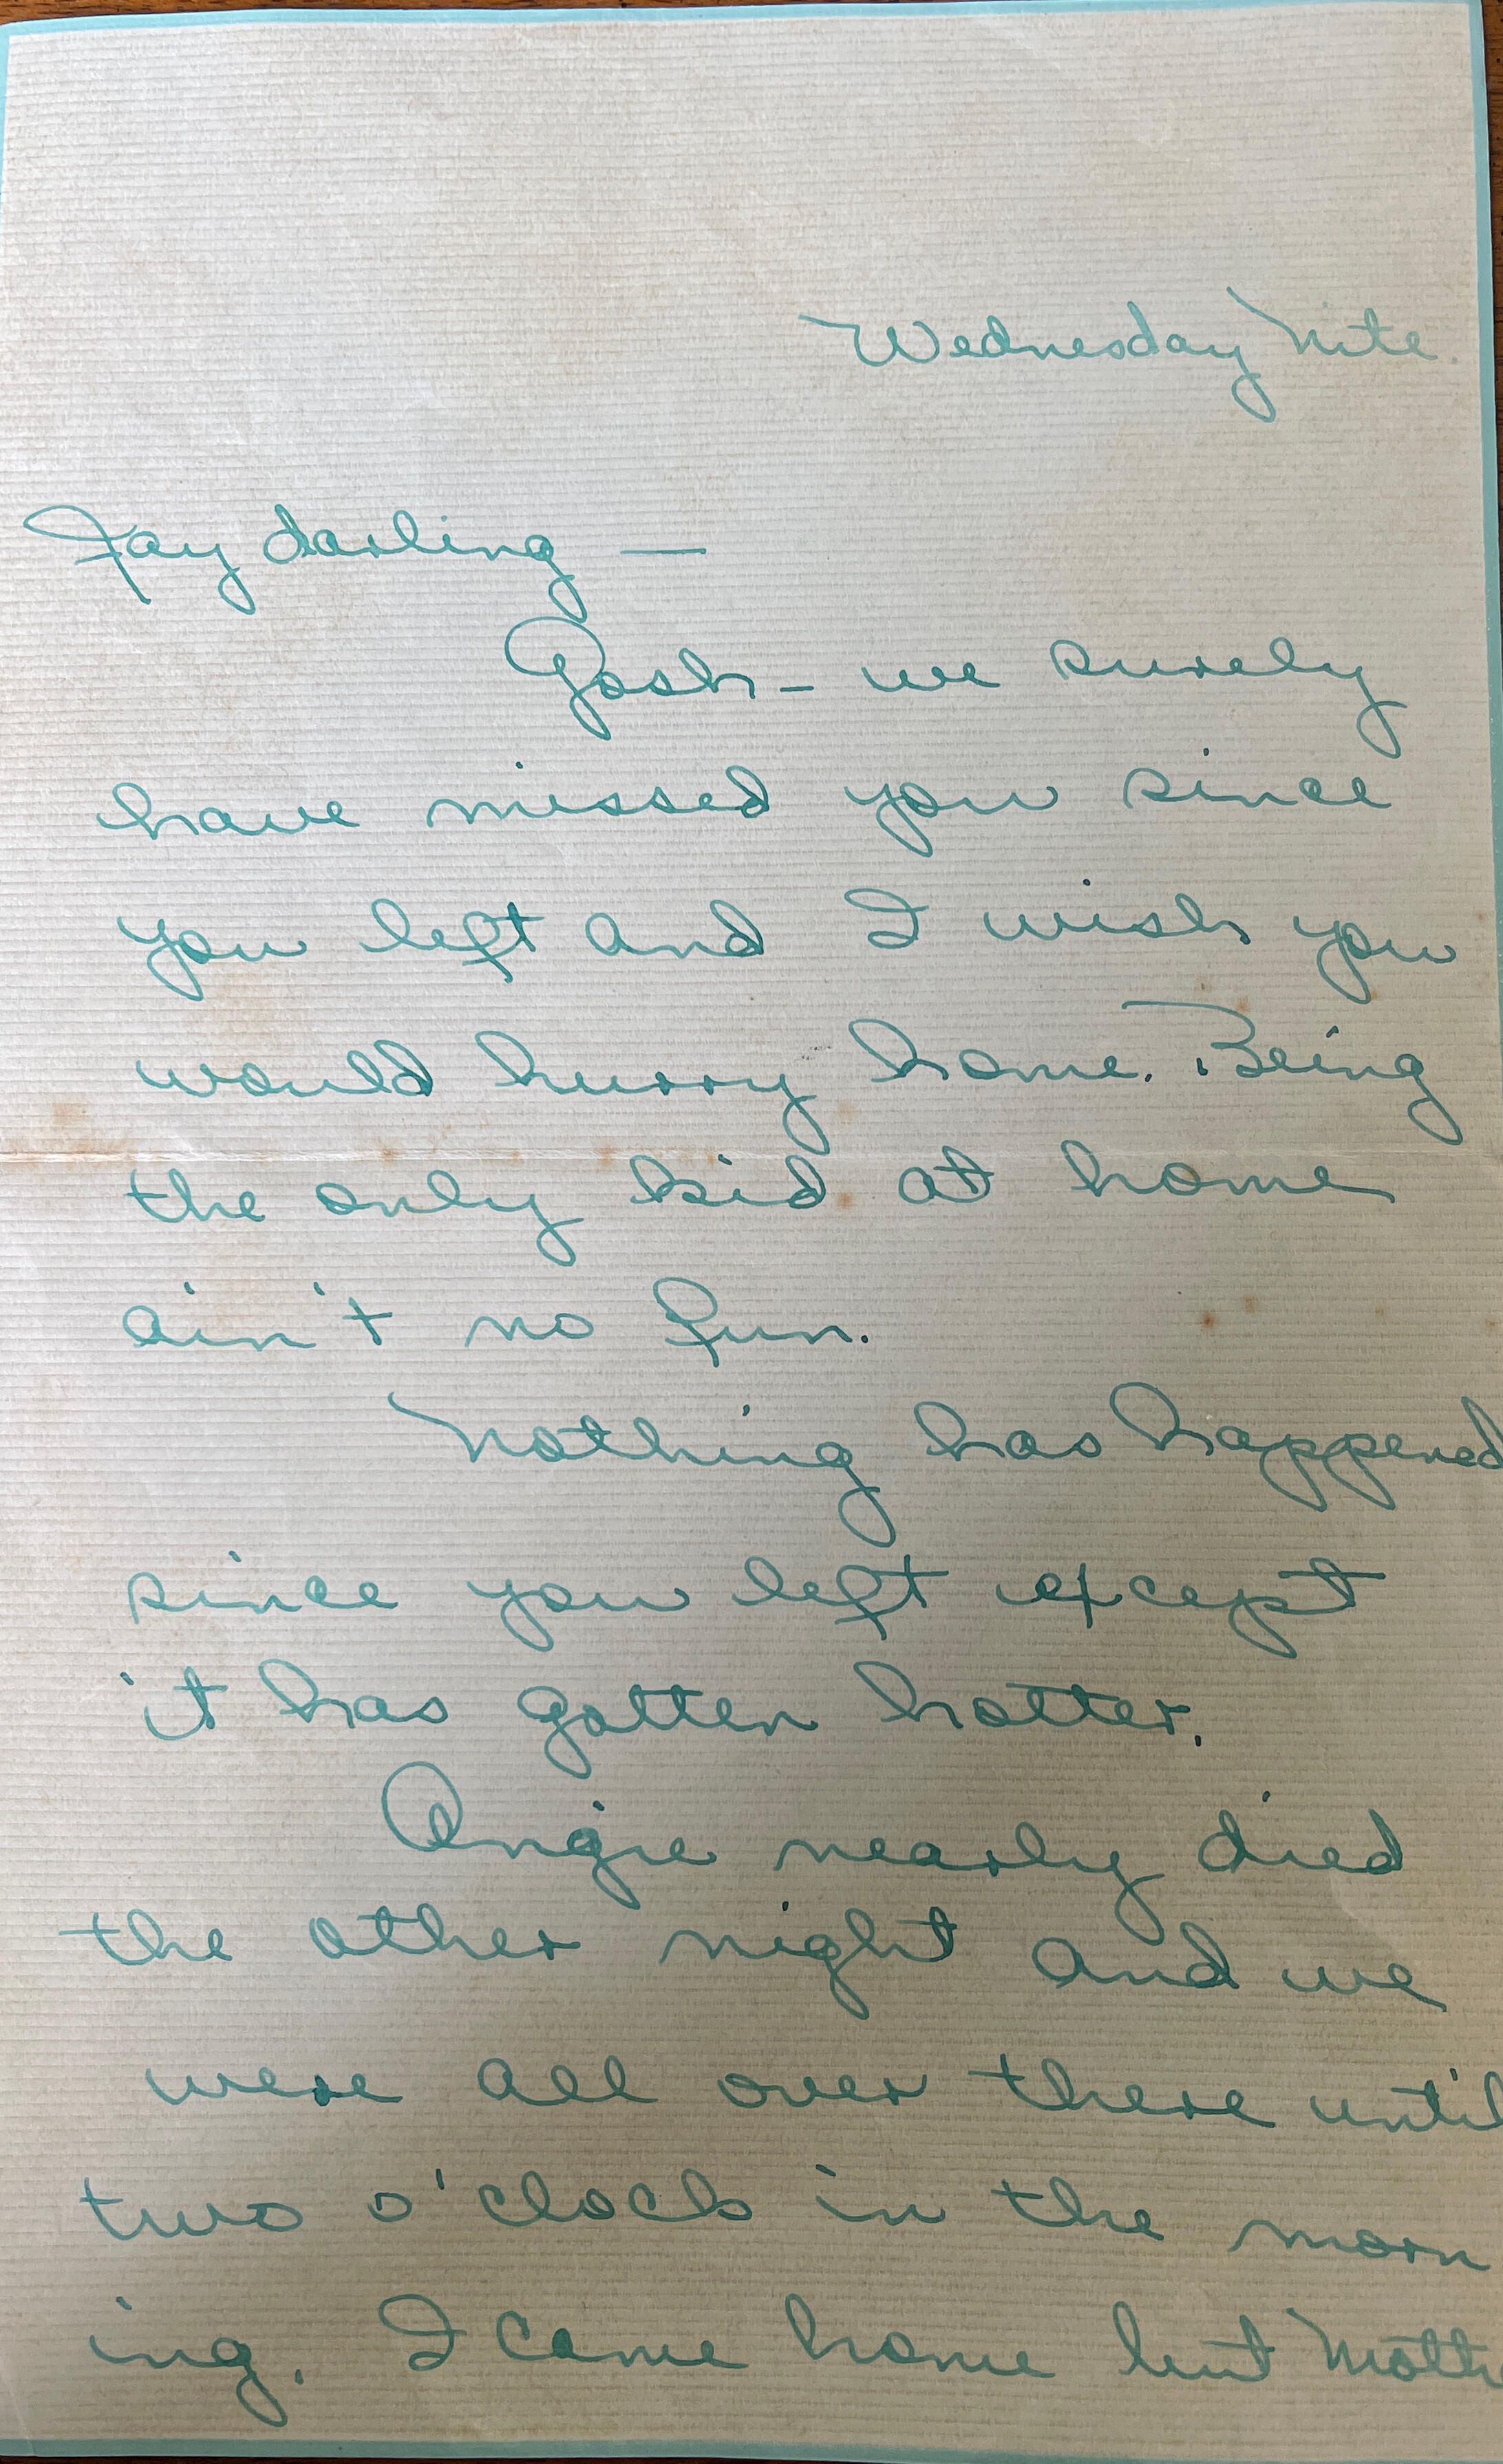 Wednesday Nite.
Fay darling —
Gosh - we surely
have missed you since
you left and I wish you
would hurry home. Being
the only kid at home
ain't no fun.
Nothing has happened
since you left except
it has gotten hotter.
Angie nearly died
the other night and we
were all over there until
two o'clock in the morn
ing. I came home but Mothe